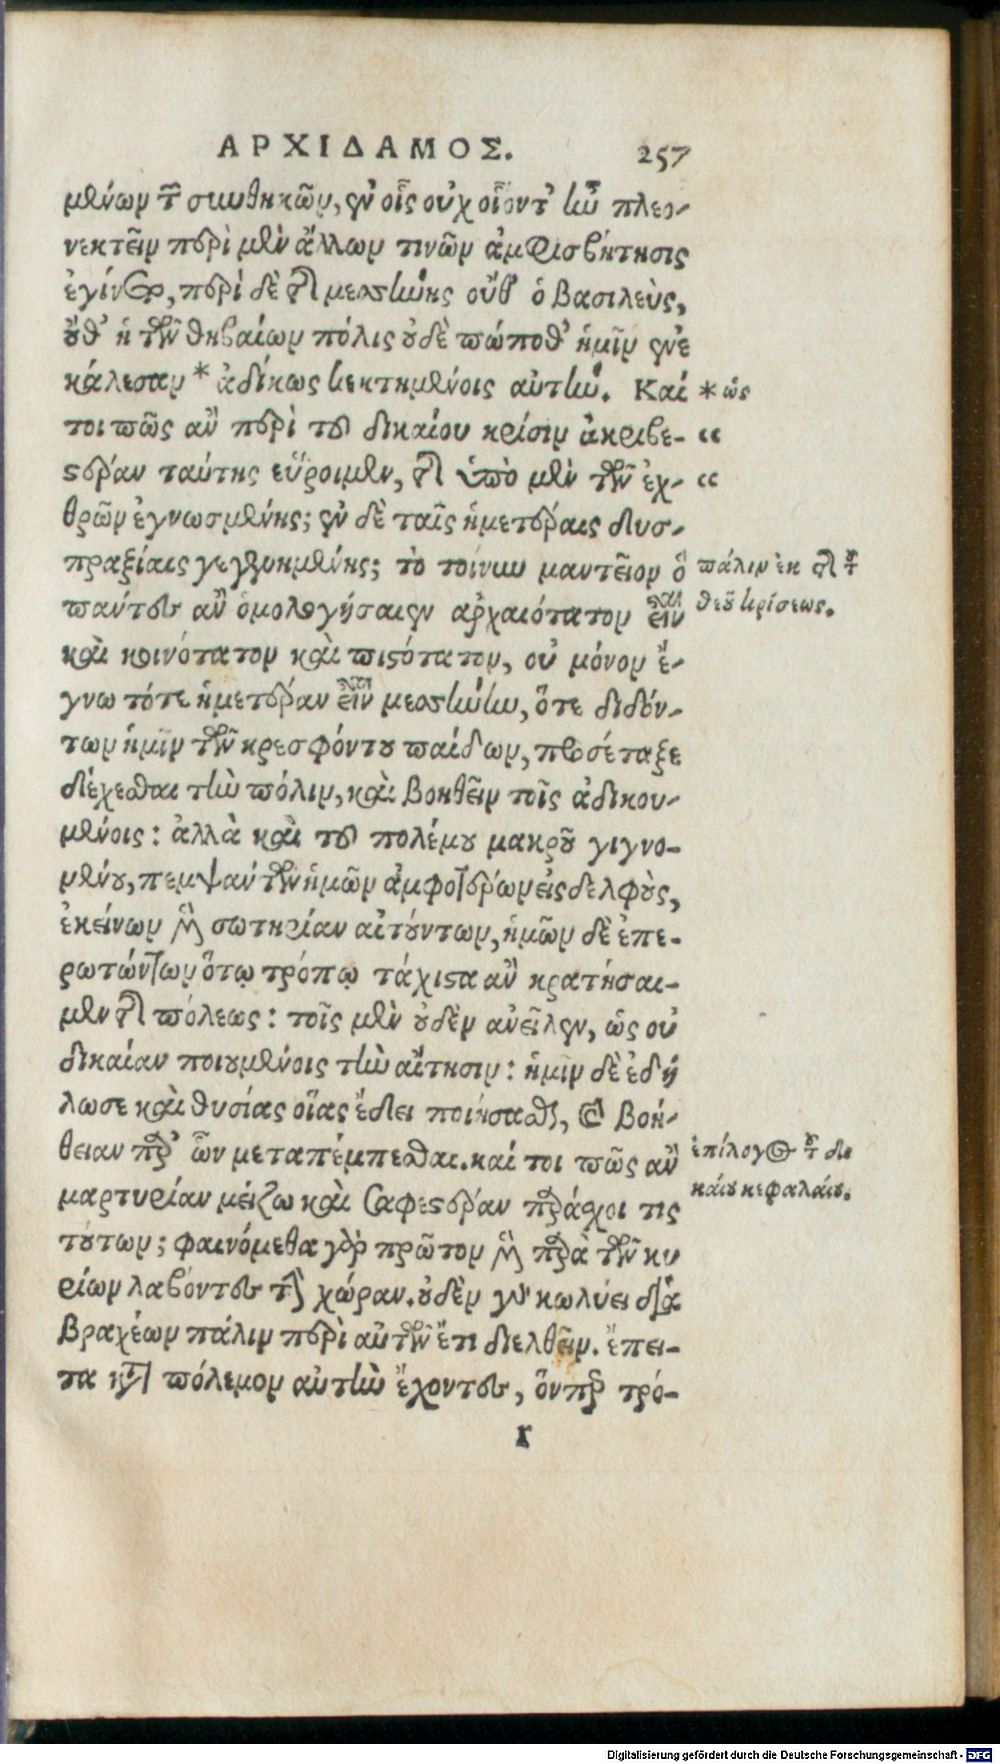 ΑΡΧΙΔΑΜΟΣ. 257
μένων τῶν συνθηκῶν, ἐν οἷς οὐχ οἷόντ' ἦν πλεο-
νεκτεῖν περὶ μὲν ἄλλων τινῶν ἀμφισβήτησις
ἐγίνετο, περὶ δὲ τῆς μεσσήνης οὔθ' ὁ βασιλεὺς,
οὔθ' ἡ τῶν θηβαίων πόλις οὐδὲ πώποθ' ἡμῖν ἐνε
κάλεσαν * ἀδίκως κεκτημένοις αὐτήν. Καί * ὡς
τοι πῶς ἂν περὶ τοῦ δικαίου κρίσιν ἀκριβε- “
στέραν ταύτης εὕροιμεν, τῆς ὑπὸ μὲν τῶν ἐχ- “
θρῶν ἐγνωσμένης; ἐν δὲ ταῖς ἡμετέραις δυσ-
πραξίαις γεγενημένης; τὸ τοίνυν μαντεῖον ὃ πάλιν ἐκ τῆς τοῦ
πάντες ἂν ὁμολογήσαιεν ἀρχαιότατον εἶναι θεοῦ κρίσεως.
καὶ κοινότατον καὶ πιστότατον, οὐ μόνον ἔ-
γνω τότε ἡμετέραν εἶναι μεσσήνην, ὅτε διδόν-
των ἡμῖν τῶν κρεσφόντου παίδων, προσέταξε
δέχεσθαι τὴν πόλιν, καὶ βοηθεῖν τοῖς ἀδικου-
μένοις: ἀλλὰ καὶ τοῦ πολέμου μακροῦ γιγνο-
μένου, πεμψάντων ἡμῶν ἀμφοτέρων εἰς δελφοὺς,
ἐκείνων μὲν σωτηρίαν αἰτούντων, ἡμῶν δὲ ἐπε-
ρωτώντων ὅτῳ τρόπῳ τάχιστα ἂν κρατήσαι-
μεν τῆς πόλεως: τοῖς μὲν οὐδὲν ἀνεῖλεν, ὡς οὐ
δικαίαν ποιουμένοις τὴν αἴτησιν: ἡμῖν δὲ ἐδή
λωσε καὶ θυσίας οἵας ἔδει ποιήσασθαι, καὶ βοή-
θειαν παρ' ὧν μεταπέμπεσθαι. καί τοι πῶς ἂν ἐπίλογος τοῦ δι
μαρτυρίαν μείζω καὶ σαφεστέραν παράσχοι τις καίου κεφαλαίου.
τούτων; φαινόμεθα γὰρ πρῶτον μὲν παρὰ τῶν κυ
ρίων λαβόντες τὴν χώραν. οὐδὲν γὰρ κωλύει διὰ
βραχέων πάλιν περὶ αὐτῶν ἔτι διελθεῖν. ἔπει-
τα κατὰ πόλεμον αὐτὴν ἔχοντες, ὅνπερ τρό-
r
Digitalisierung gefördert durch die Deutsche Forschungsgemeinschaft - DFG